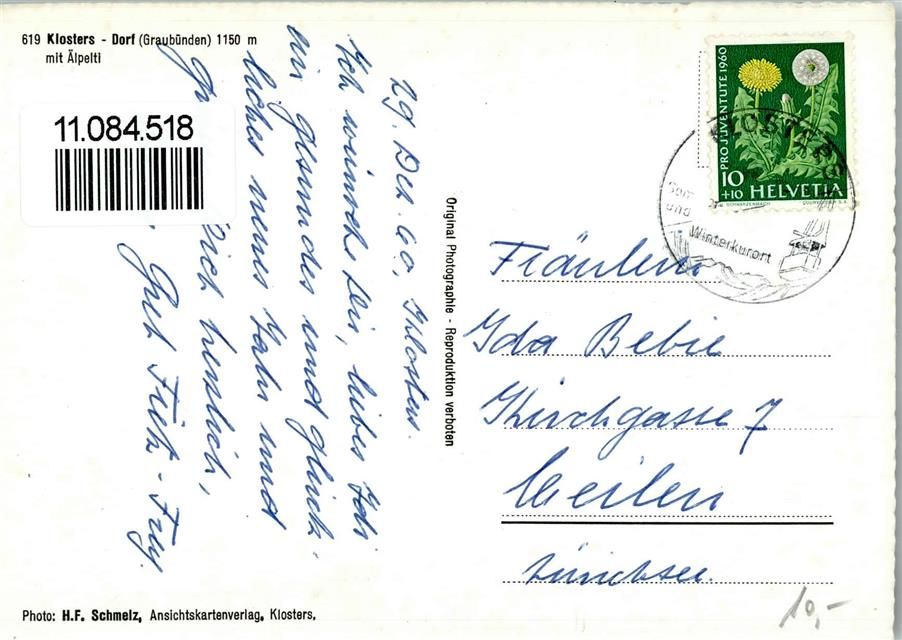 619 Klosters - Dorf (Graubünden) 1150 m
mit Älpelti
11.084.518
29. Dez. 60, Klosters.
Ich wünsche Dir, liebes Idi
ein gesundes und glück-
liches neues Jahr und
Dich herzlich,
Gret Fritz - Frey.
Original Photographie - Reproduktion verboten
PRO JUVENTUTE 1960
10
+10 HELVETIA
KLOSTERS
Winterkurort
Fräulein
Ida Bebie
Kirchgasse 7
Meilen
Zürichsee.
Photo: H.F. Schmelz, Ansichtskartenverlag, Klosters.
10,-